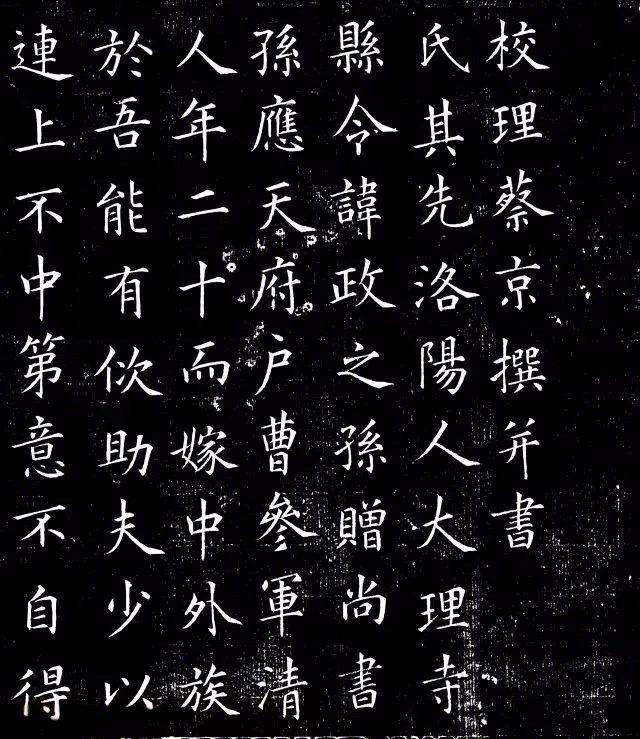 校理蔡京撰并書
氏其先洛陽人大理寺
縣令諱政之孫贈尚書
孫應天府户曹參軍清
人年二十而嫁中外族
於吾能有佽助夫少以
連上不中第意不自得